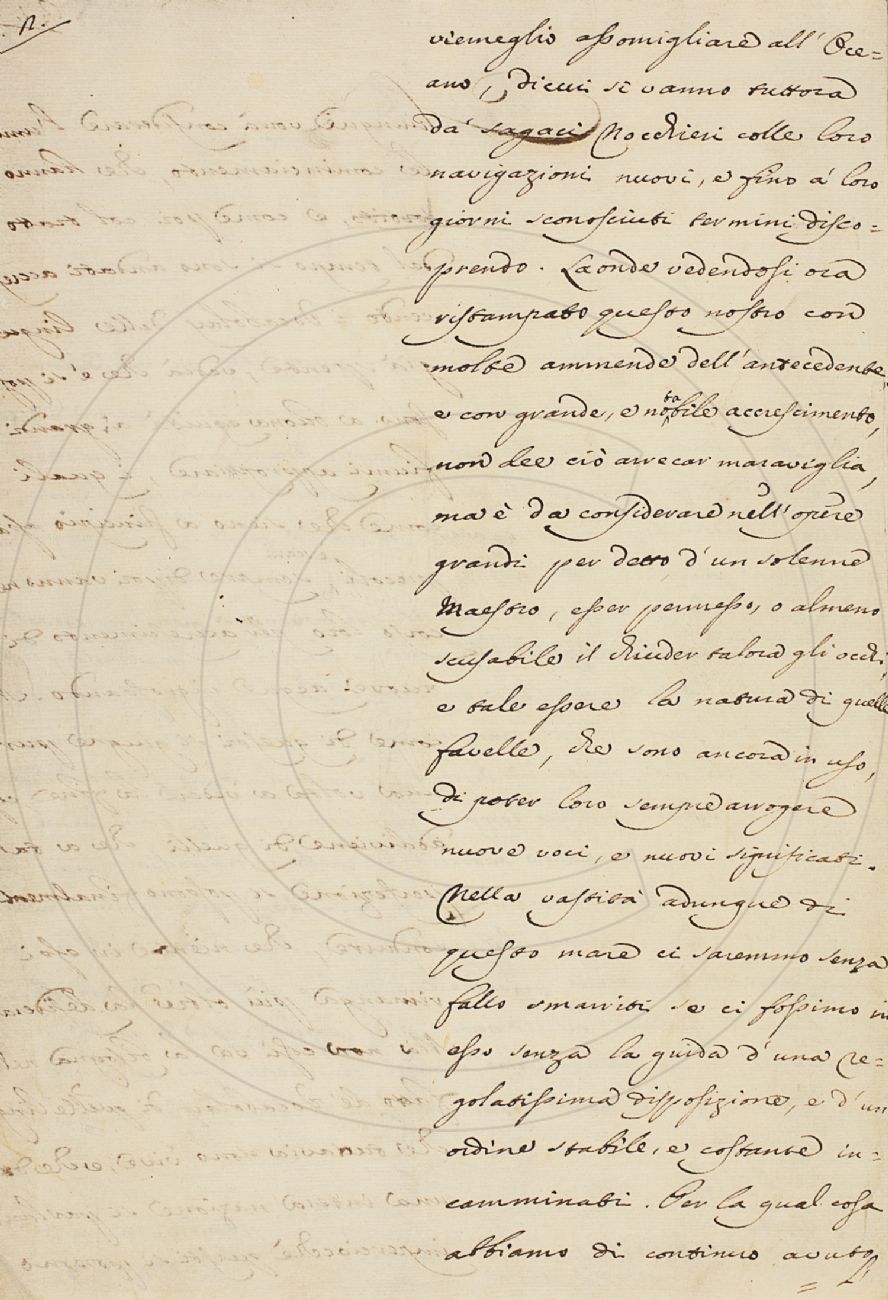 12.
viemeglio assomigliare all' Oce=
ano, di cui si vanno tuttora
da' sagaci Nocchieri colle loro
navigazioni nuovi, e fino a' loro
giorni sconosciuti termini disco=
prendo. Laonde vedendosi ora
ristampato questo nostro con
molte ammende dell' antecedente,
e con grande, e notabile accrescimento,
non dee ciò arrecar maraviglia,
ma è da considerare nell' opere
grandi per detto d' un solenne
Maestro, esser permesso, o almeno
scusabile il chiuder talora gli occhi,
e tale essere la natura di quelle
favelle, che sono ancora in uso,
di poter loro sempre arrogere
nuove voci, e nuovi significati.
Nella vastità adunque di
questo mare ci saremmo senza
fallo smarriti se ci fossimo in
esso senza la guida d' una re=
golatissima disposizione, e d' un
ordine stabile, e costante in=
camminati. Per la qual cosa
abbiamo di continuo avuto
= l'